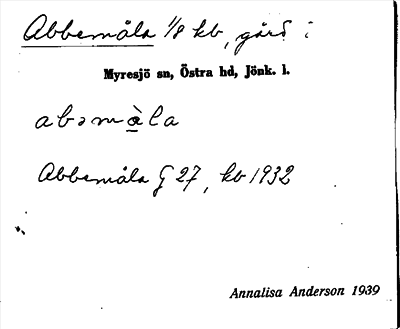 Abbemåla 1/8 kb, gård i
Myresjö sn, Östra hd, Jönk. l.
abəmàla
Abbemåla G 27, kb 1932
Annalisa Anderson 1939